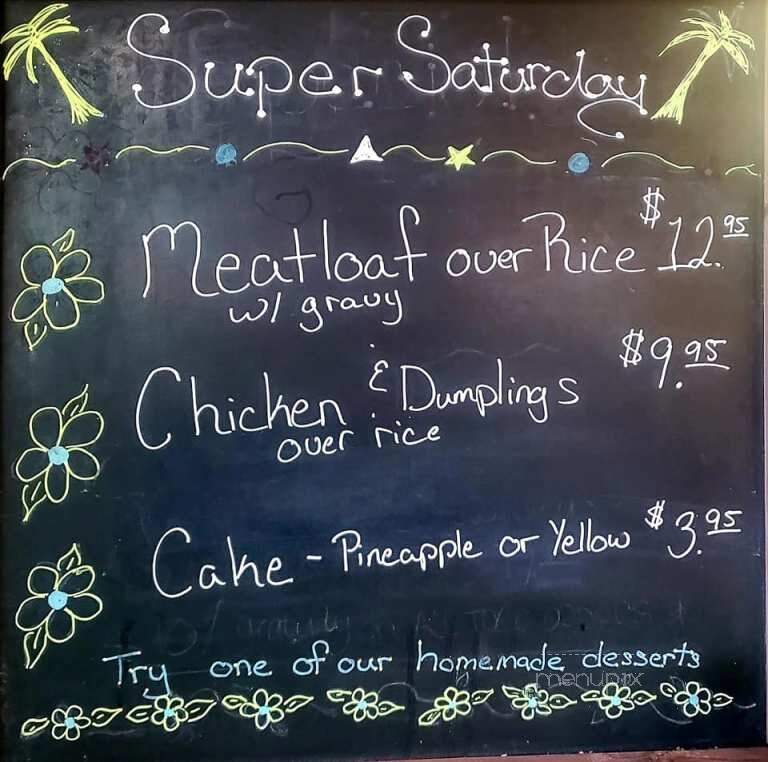 Super Saturday
Meatloaf over Rice $12.95
w/ gravy
Chicken & Dumplings $9.95
over rice
Cake - Pineapple or Yellow $3.95
Try one of our homemade desserts
menupix